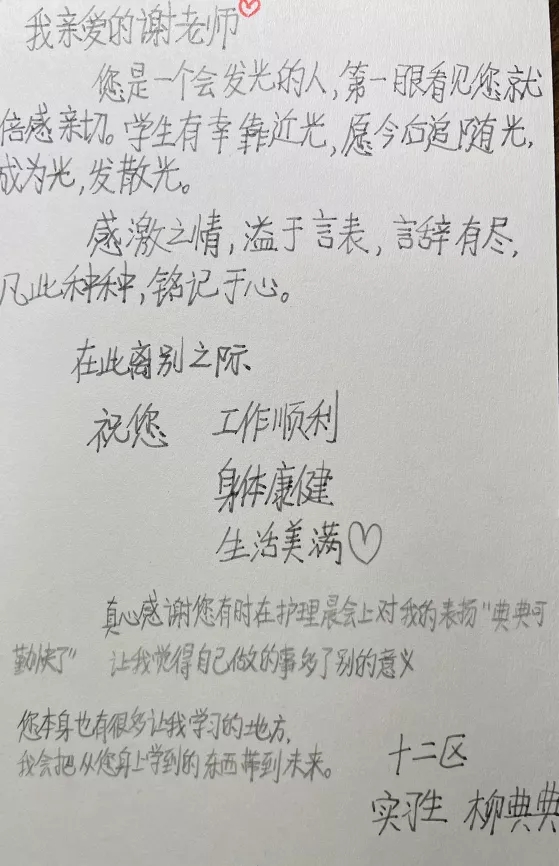 我亲爱的谢老师♡
您是一个会发光的人,第一眼看见您就
倍感亲切。学生有幸靠近光,愿今后追随光,
成为光,发散光。
感激之情,溢于言表,言辞有尽,
凡此种种,铭记于心。
在此离别之际、
祝您 工作顺利
身体康健
生活美满♡
真心感谢您有时在护理晨会上对我的表扬“典典可
勤快了” 让我觉得自己做的事多了别的意义
您本身也有很多让我学习的地方,
我会把从您身上学到的东西带到未来。
十二区
实习生 柳典典